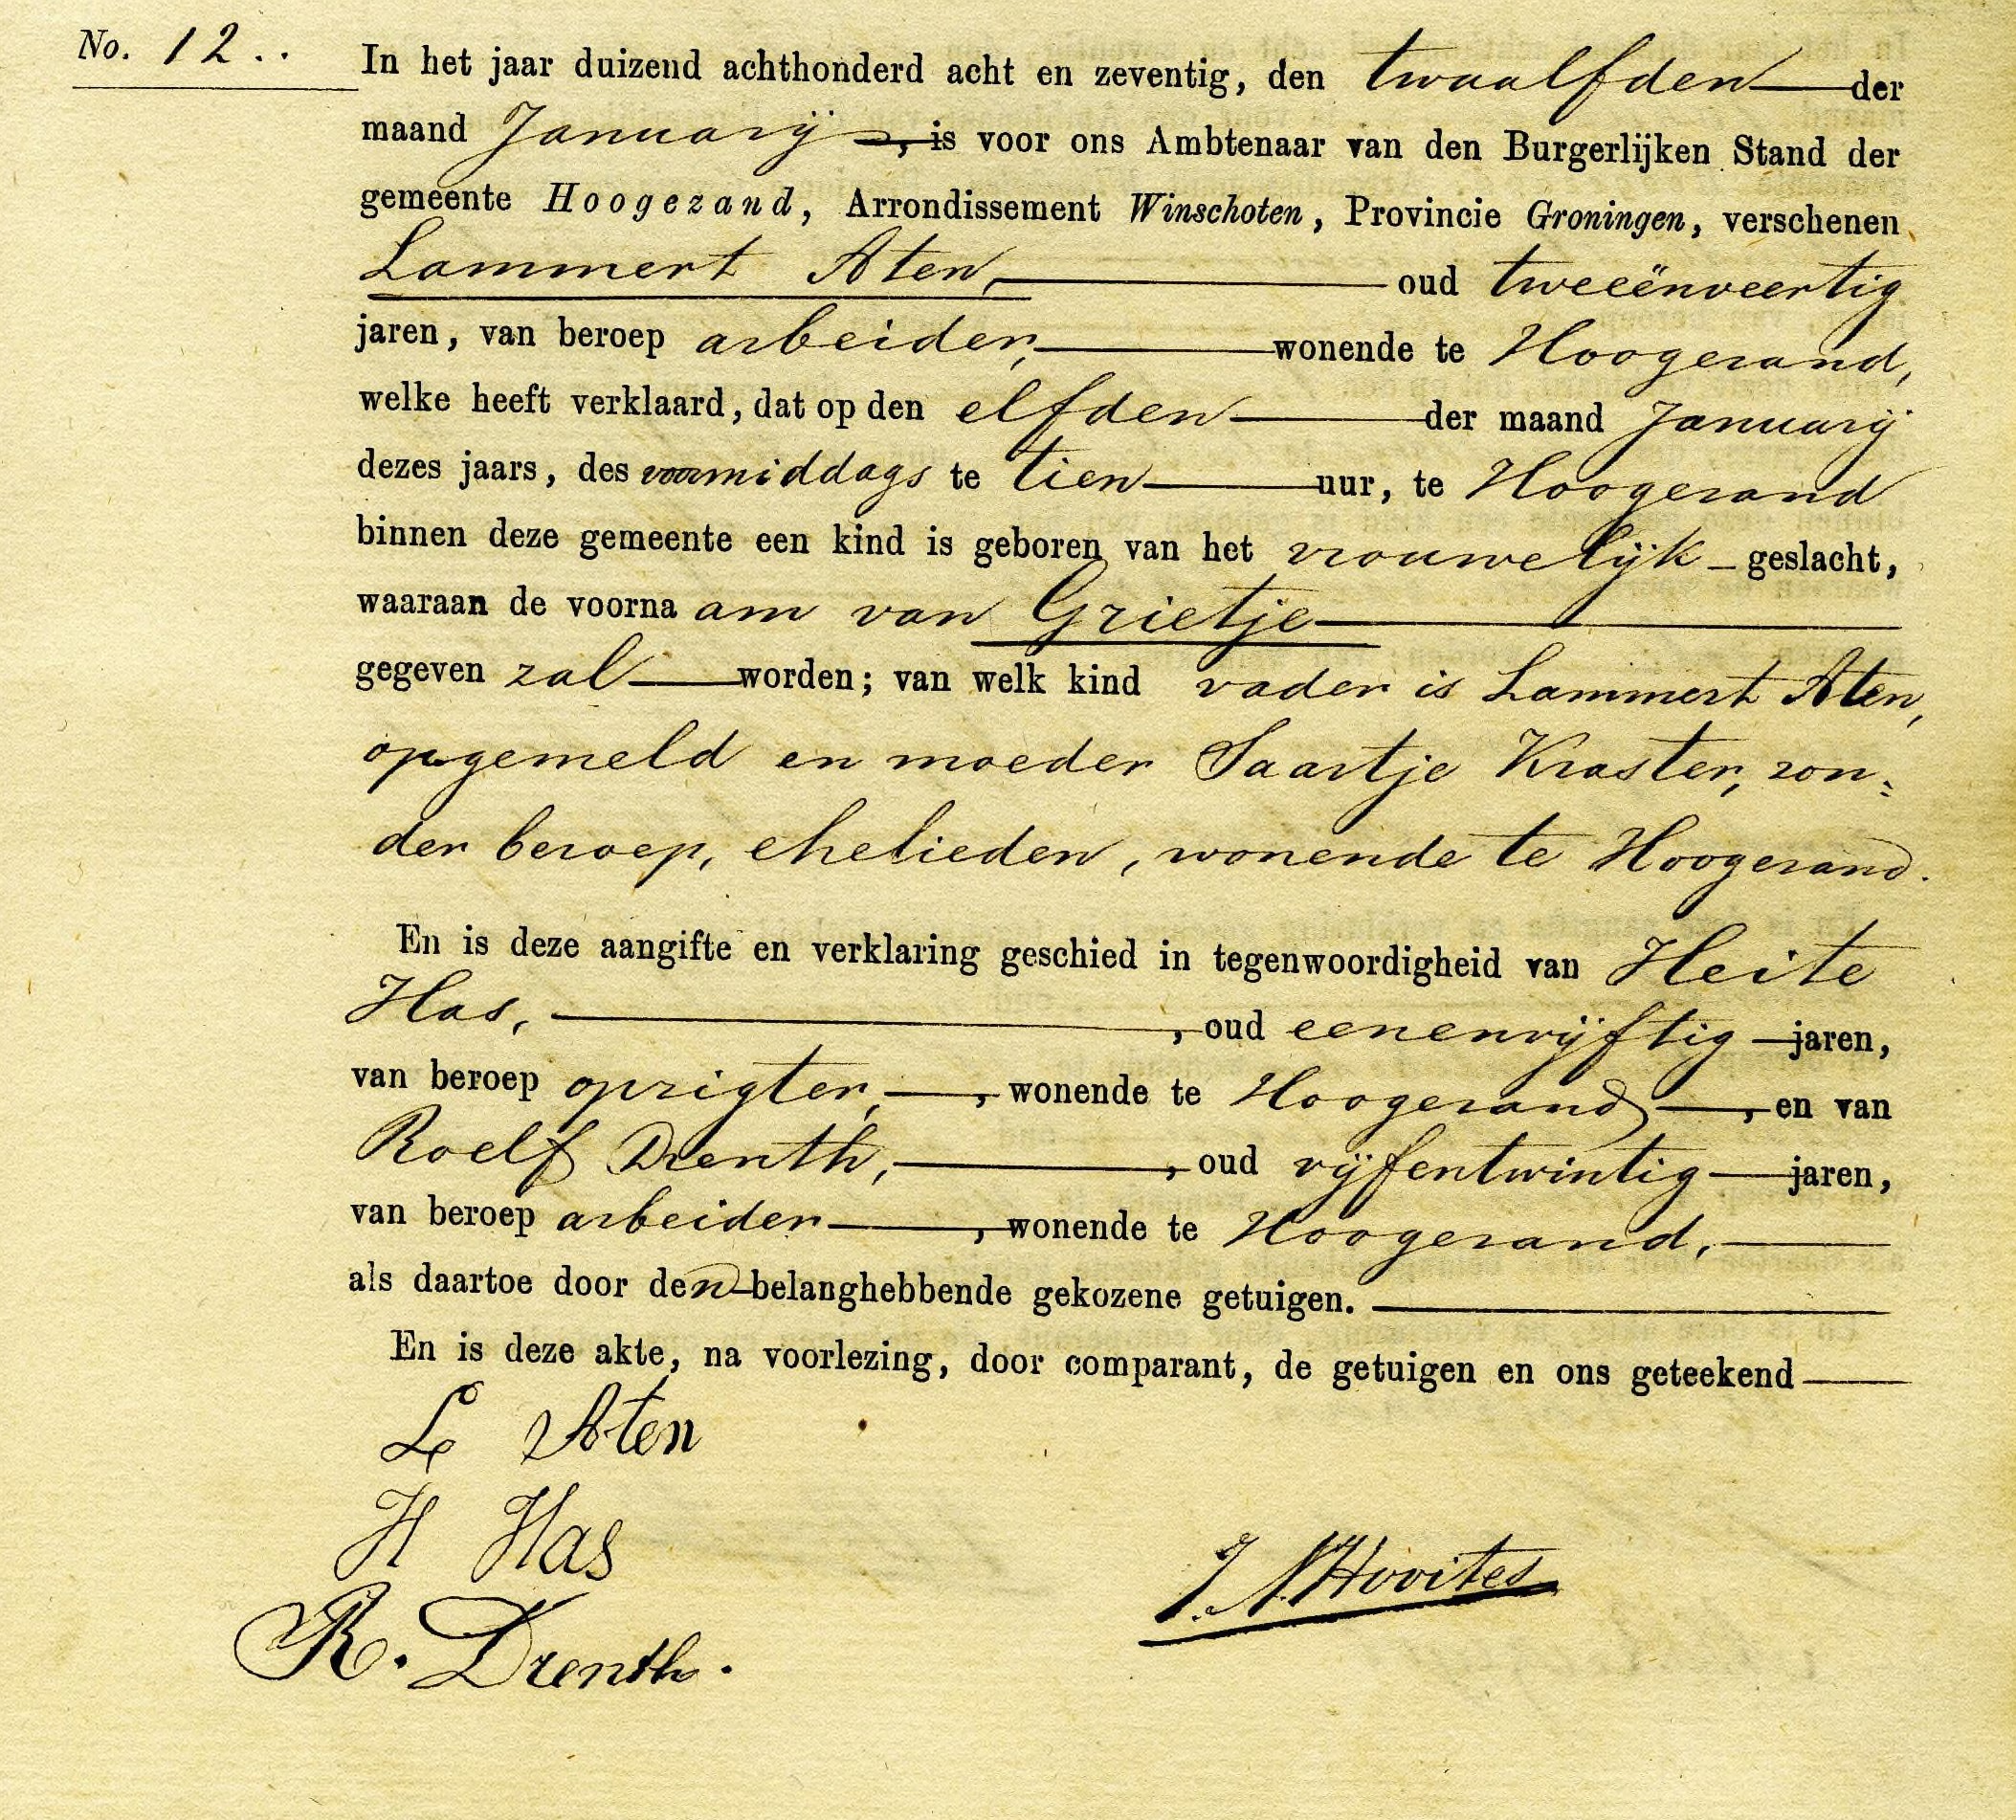 No. 12..
In het jaar duizend achthonderd acht en zeventig, den twaalfden der
maand Januarij, is voor ons Ambtenaar van den Burgerlijken Stand der
gemeente Hoogezand, Arrondissement Winschoten, Provincie Groningen, verschenen
Lammert Aten, oud tweeënveertig
jaren, van beroep arbeider, wonende te Hoogezand,
welke heeft verklaard, dat op den elfden der maand Januarij
dezes jaars, des voormiddags te tien uur, te Hoogezand
binnen deze gemeente een kind is geboren van het vrouwelijk geslacht,
waaraan de voornaam van Grietje
gegeven zal worden; van welk kind vader is Lammert Aten,
opgemeld en moeder Saartje Kraster, zon=
der beroep, ehelieden, wonende te Hoogezand.
En is deze aangifte en verklaring geschied in tegenwoordigheid van Heite
Has, , oud eenenvijftig jaren,
van beroep oprigter, , wonende te Hoogezand, en van
Roelf Drenth, , oud vijfentwintig jaren,
van beroep arbeider, wonende te Hoogezand,
als daartoe door den belanghebbende gekozene getuigen.
En is deze akte, na voorlezing, door comparant, de getuigen en ons geteekend
L Aten
H Has
R. Drenth.